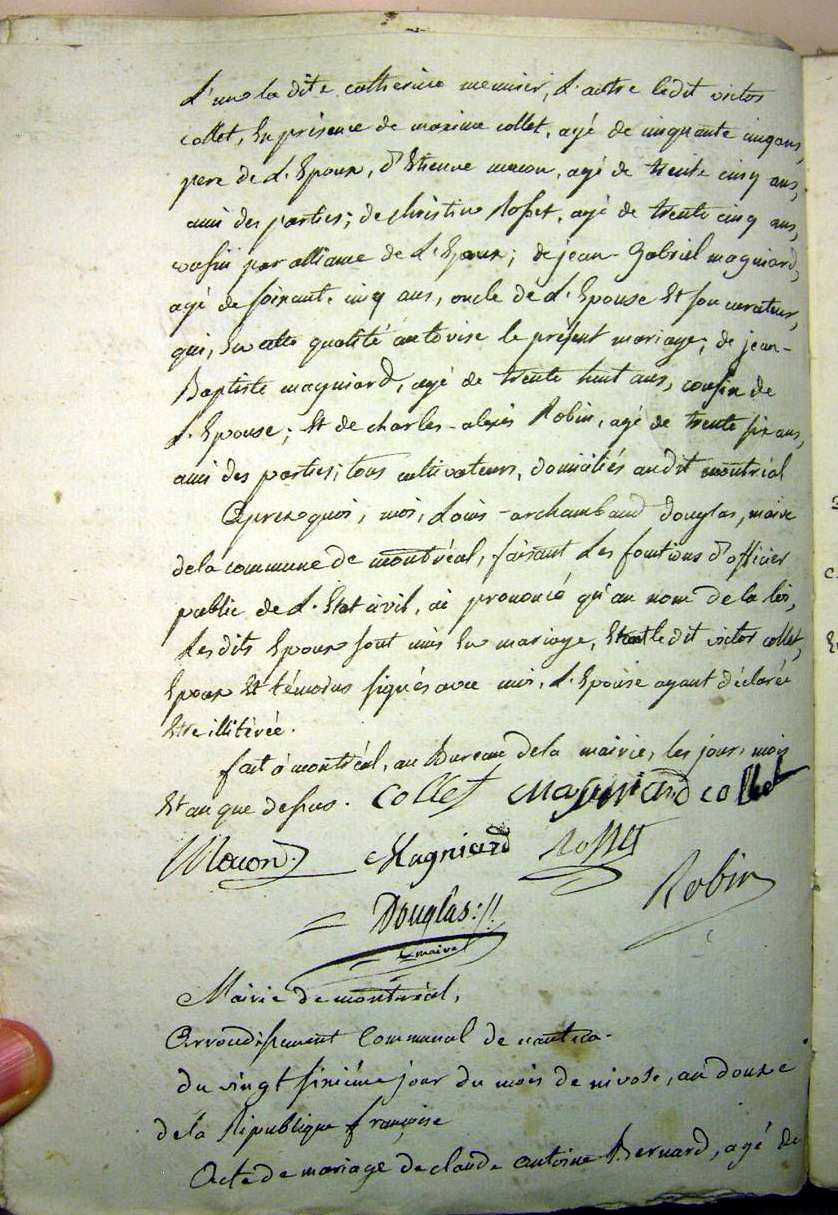 L'une la dite catherine meunier, L'autre ledit victor
collet, En présence de maxime collet, agé de cinquante cinq ans,
pere de L'Epoux, d'Etienne macon, agé de trente cinq ans,
ami des parties; de christin Rosset, agé de trente cinq ans,
cousin par alliance de L'Epoux; de jean-Gabriel magniard,
agé de soixante cinq ans, oncle de L'Epouse Et son curateur,
qui, En cette qualité autorise le présent mariage; de jean-
Baptiste magniard, agé de trente huit ans, cousin de
L'Epouse; Et de charles-alexis Robin, agé de trente six ans,
ami des parties; tous cultivateurs, domiciliés audit montréal
Après quoi, moi, Louis-archambaud douglas, maire
de la commune de montréal, faisant Les fonctions d'officier
public de L'Etat civil, ai prononcé qu'au nom de la loi,
Les dits Epoux sont unis En mariage, Et ledit victor collet,
Epoux Et témoins signés avec moi, L'Epouse ayant déclarée
Etre illitérée.
fait à montréal, au Bureau de la mairie, les jour, mois
Et an que dessus. Collet Magniard collet
Macon Magniard Rosset
Robin
Douglas
maire
Mairie de montréal,
Arrondissement Communal de nantua.
du vingt sixième jour du mois de nivose, an douze
de la République françoise
Acte de mariage de claude antoine Bernard, agé de